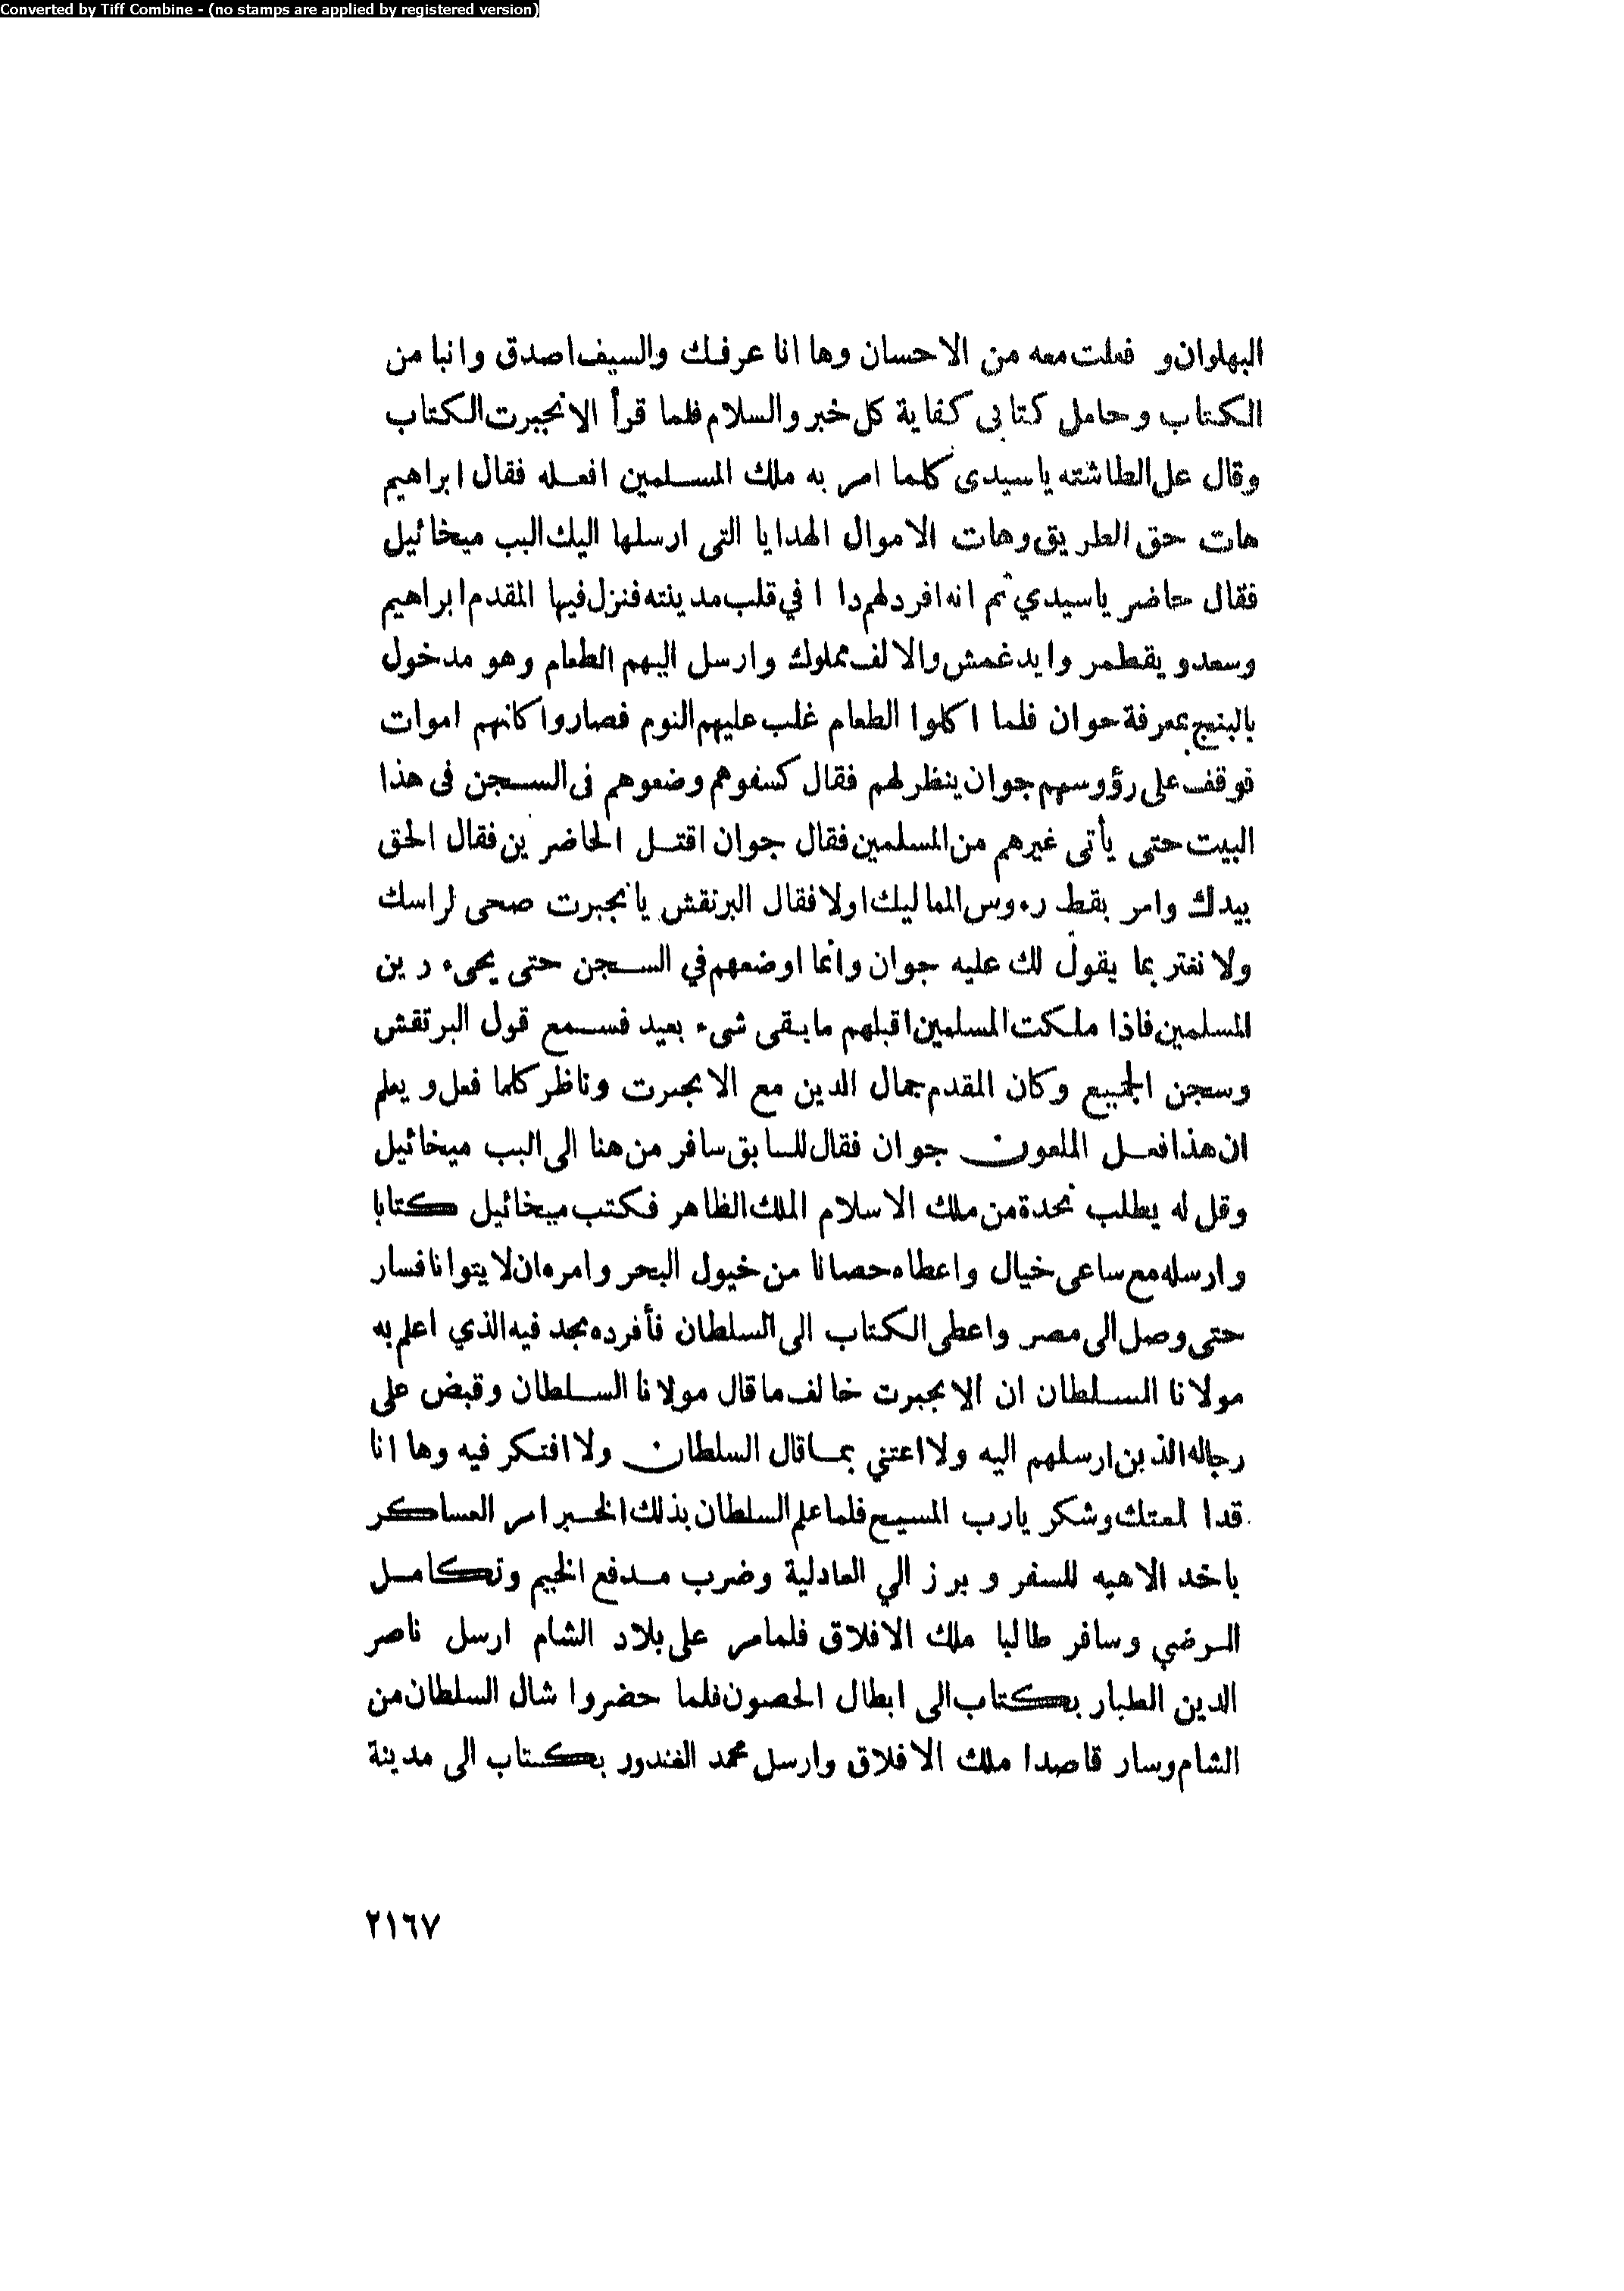 Converted by Tiff Combine - (no stamps are applied by registered version)
البهلوان و فعلت معه من الاحسان وها انا عرفك والسيف اصدق وانبا من
الكتاب وحامل كتابى كفاية كل خبر والسلام فلما قرأ الانجبرت الكتاب
وقال على الطاشته ياسيدى كلما امر به ملك المسلمين افعله فقال ابراهيم
هات حق الطريق وهات الاموال الهدايا التى ارسلها اليك البب ميخائيل
فقال حاضر ياسيدي ثم انه افرد لهم دا ا في قلب مدينته فنزل فيها المقدم ابراهيم
وسعد ويقطمر وايدغمش والالف مملوك وارسل اليهم الطعام وهو مدخول
بالبنج بمعرفة جوان فلما اكلوا الطعام غلب عليهم النوم فصاروا كانهم اموات
فوقف على رؤوسهم جوان ينظر لهم فقال كسفوهم وضعوهم فى السجن فى هذا
البيت حتى يأتى غيرهم من المسلمين فقال جوان اقتل الحاضرين فقال الحق
بيدك وامر بقط رءوس المماليك اولا فقال البرنقش يانجبرت صحى لراسك
ولا تغتر بما يقول لك عليه جوان وانما اوضعهم في السجن حتى يجىء رين
المسلمين فاذا ملكت المسلمين اقبلهم ما يبقى شىء بعيد فسمع قول البرتقش
وسجن الجميع وكان المقدم جمال الدين مع الانجبرت وناظر كلما فعل ويعلم
ان هذا فعل الملعون جوان فقال للسابق سافر من هنا الى البب ميخائيل
وقل له يطلب نجدة من ملك الاسلام الملك الظاهر فكتب ميخائيل كتابا
وارسله مع ساعى خيال واعطاه حصانا من خيول البحر وامره ان لا يتوانا فسار
حتى وصل الى مصر واعطى الكتاب الى السلطان فأفرده يجد فيه الذي اعلم به
مولانا السلطان ان الانجبرت خالف ما قال مولانا السلطان وقبض على
رجاله الذين ارسلهم اليه ولا اعتني بما قال السلطان ولا افتكر فيه وها انا
قد ا لمعتك وشكر يارب المسيح فلما علم السلطان بذلك الخبر امر العساكر
باخد الاهبه للسفر وبرز الي العادلية وضرب مدفع الخيم وتكامل
الرضي وسافر طالبا ملك الافلاق فلما مر على بلاد الشام ارسل ناصر
الدين الطيار بكتاب الى ابطال الحصون فلما حضروا شال السلطان من
الشام وسار قاصدا ملك الافلاق وارسل محمد الفندور بكتاب الى مدينة
٢١٦٧